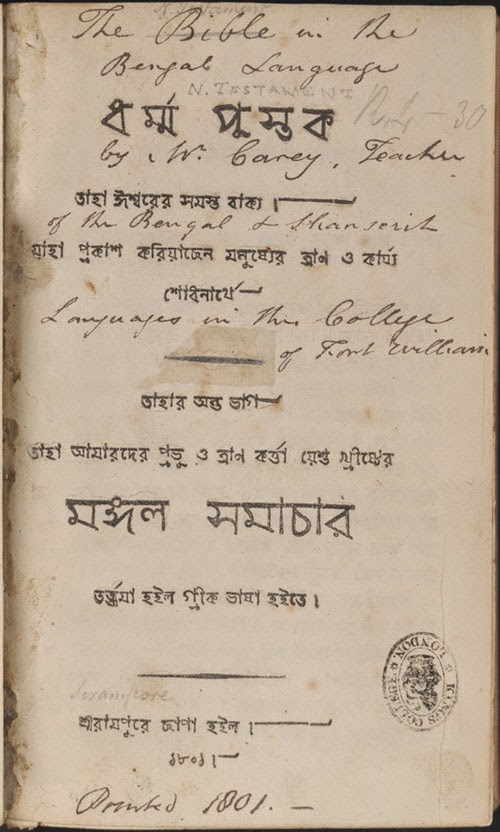 N. Testament
The Bible in the
Bengal Language
N. TESTAMENT
ধর্ম্ম পুস্তক
by Mr. Carey, Teacher
তাহা ঈশ্বরের সমস্ত বাক্য।
of the Bengal & Shanscrit
যাহা প্রকাশ করিয়াছেন মনুষ্যের ত্রাণ ও কার্য্য
শোধনার্থে
Languages in the College
of Fort William
তাহার অন্ত ভাগ
তাহা আমারদের প্রভু ও ত্রাণ কর্ত্তা য়েশু খ্রীষ্টের
মঙ্গল সমাচার
তর্জ্জমা হইল গ্রীক ভাষা হইতে।
Serampore
শ্রীরামপুরে ছাপা হইল।
১৮০১।
Printed 1801. –
KINGS COLLEGE LONDON